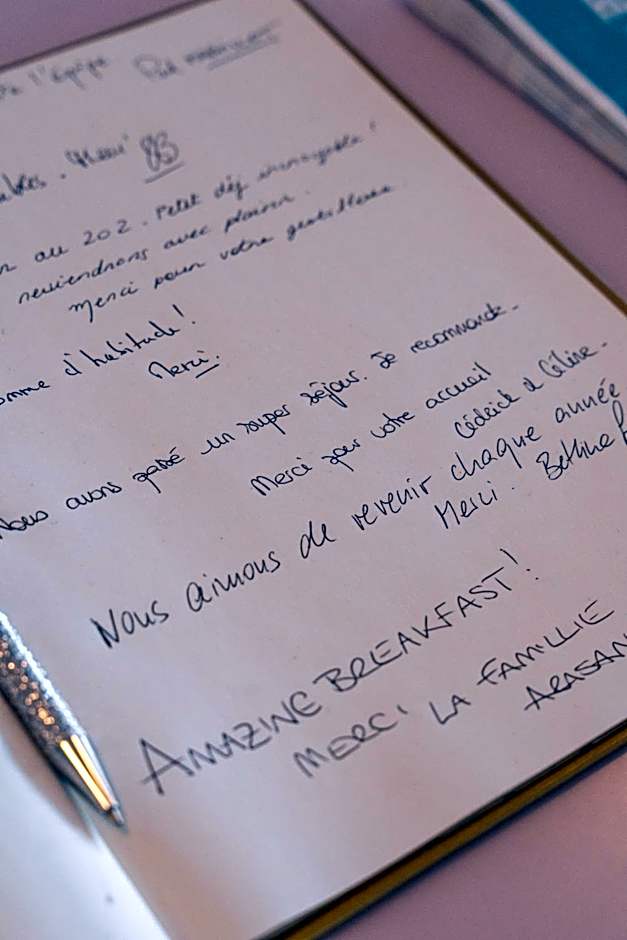 l'équipe
Merci 83
au 202. Petit dej incroyable!
reviendrons avec plaisir.
Merci pour votre gentillesse
d'habitude!
Merci.
Nous avons passé un super séjour. Je recommande.
Merci pour votre accueil
Cédrick & Céline.
Nous aimons de revenir chaque année
Merci. Bettina
AMAZINE BREAKFAST!
MERCI LA FAMILLIE